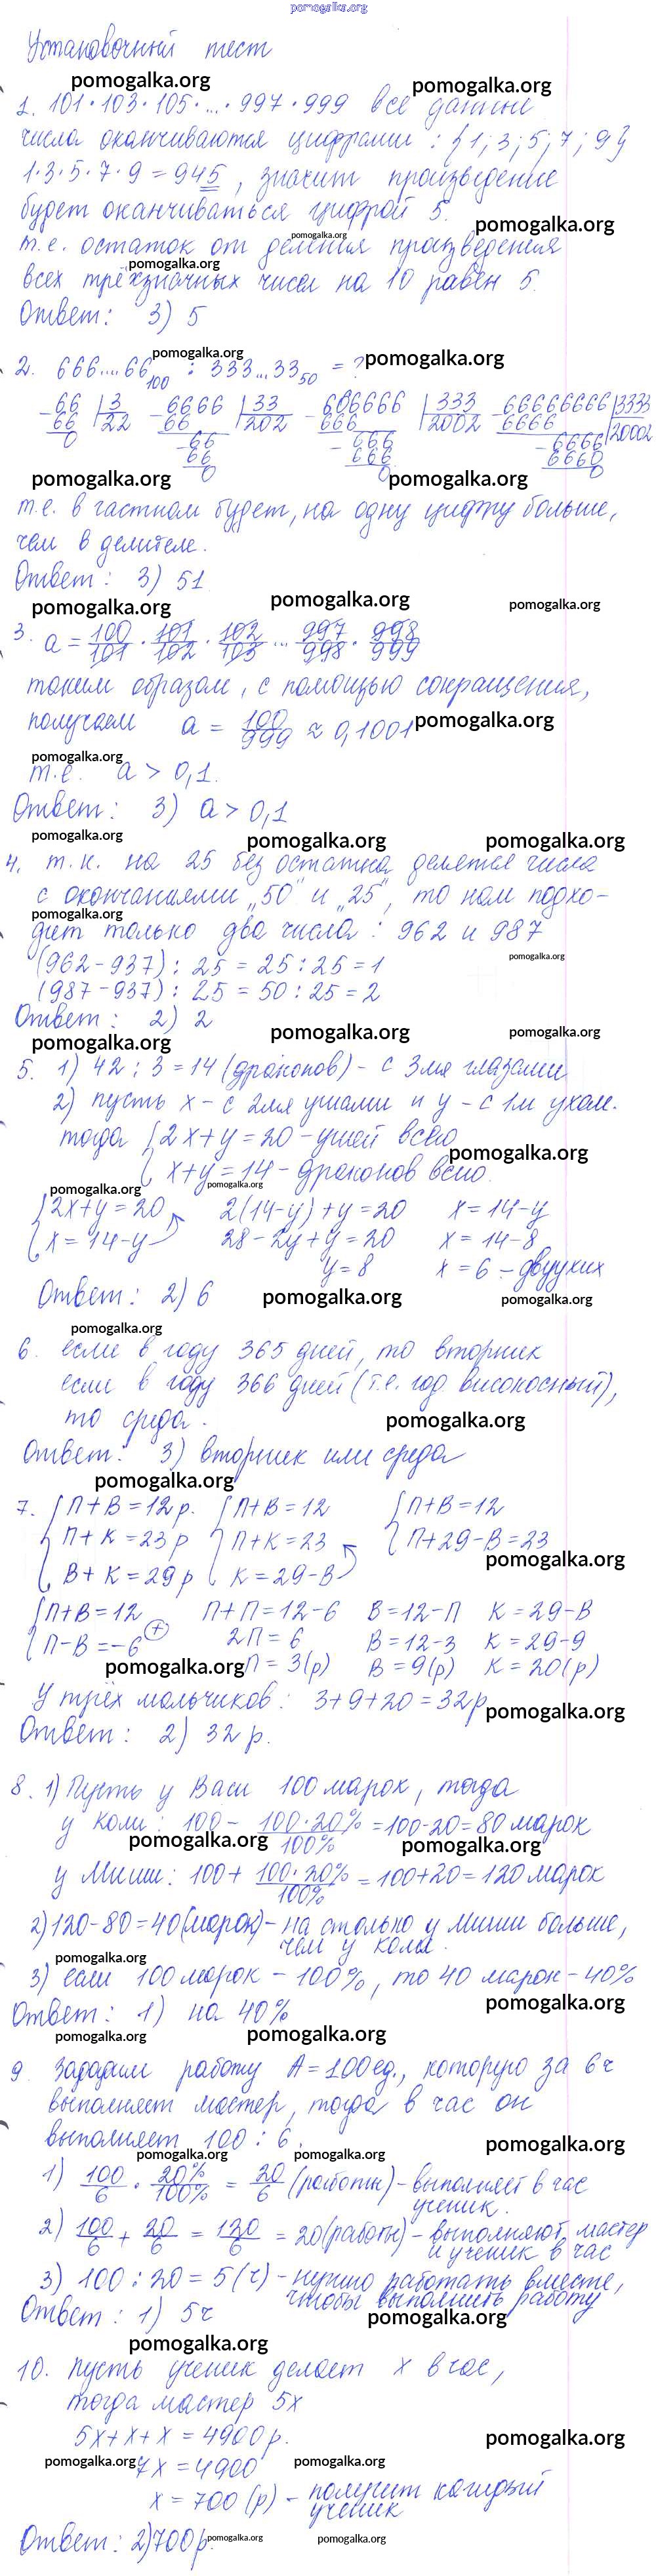 pomogalka.org
Установочный тест
pomogalka.org pomogalka.org
1. 101·103·105·...·997·999 все данные
числа оканчиваются цифрами: {1; 3; 5; 7; 9}
1·3·5·7·9=945, значит произведение
будет оканчиваться цифрой 5.
pomogalka.org pomogalka.org
т.е. остаток от деления произведения
pomogalka.org
всех трёхзначных чисел на 10 равен 5.
Ответ: 3) 5
pomogalka.org pomogalka.org
2. 666...66100 : 333...3350 = ?
66 | 3 6666 | 33 666666 | 333 66666666 | 3333
66 22 66 202 666 2002 6666 20002
0 66 666 6666
66 666 6660
0 0 0
pomogalka.org pomogalka.org
т.е. в частном будет, на одну цифру больше,
чем в делителе.
Ответ: 3) 51
pomogalka.org pomogalka.org pomogalka.org
3. a = 100/101 · 101/102 · 102/103 ... 997/998 · 998/999
таким образом, с помощью сокращения,
получаем a = 100/999 ≈ 0,1001
pomogalka.org
pomogalka.org
т.е. a > 0,1.
Ответ: 3) a > 0,1
pomogalka.org pomogalka.org pomogalka.org
4. т.к. на 25 без остатка делятся числа
с окончаниями „50" и „25", то нам подхо-
pomogalka.org
дит только два числа: 962 и 987
(962-937) : 25 = 25 : 25 = 1
pomogalka.org
(987-937) : 25 = 50 : 25 = 2
Ответ: 2) 2
pomogalka.org pomogalka.org pomogalka.org
5. 1) 42 : 3 = 14 (драконов) - с 3мя глазами
2) пусть x - с 2мя ушами и y - с 1м ухом.
тогда {2x+y=20 - ушей всего
x+y=14 - драконов всего.
pomogalka.org
pomogalka.org pomogalka.org
{2x+y=20 2(14-y)+y=20 x=14-y
x=14-y 28-2y+y=20 x=14-8
y=8 x=6 - двуухих
Ответ: 2) 6
pomogalka.org pomogalka.org
pomogalka.org
6. если в году 365 дней, то вторник
если в году 366 дней (т.е. год високосный),
то среда.
pomogalka.org
Ответ: 3) вторник или среда
pomogalka.org
7. {П+В=12 р. {П+В=12 {П+В=12
П+К=23 р П+К=23 П+29-В=23
В+К=29 р К=29-В
pomogalka.org
{П+В=12 П+П=12-6 В=12-П К=29-В
П-В=-6 + 2П=6 В=12-3 К=29-9
pomogalka.org П=3(р) В=9(р) К=20(р)
У трёх мальчиков: 3+9+20=32р
pomogalka.org
Ответ: 2) 32 р.
8. 1) Пусть у Васи 100 марок, тогда
у Коли: 100 - 100·20%/100% = 100-20=80 марок
pomogalka.org pomogalka.org
у Миши: 100 + 100·20%/100% = 100+20=120 марок
2) 120-80=40(марок) - на столько у Миши больше,
чем у Коли.
pomogalka.org
3) если 100 марок - 100%, то 40 марок - 40%
pomogalka.org
Ответ: 1) на 40%
pomogalka.org pomogalka.org
9. Зададим работу А=100ед., которую за 6ч
выполняет мастер, тогда в час он
выполняет 100 : 6.
pomogalka.org
pomogalka.org pomogalka.org
1) 100/6 · 20%/100% = 20/6 (работы) - выполняет в час
ученик.
2) 100/6 + 20/6 = 120/6 = 20(работы) - выполняют мастер
и ученик в час
3) 100 : 20 = 5 (ч) - нужно работать вместе,
чтобы выполнить работу
Ответ: 1) 5ч
pomogalka.org
pomogalka.org
10. Пусть ученик делает x в час,
тогда мастер 5x
5x+x+x=4900р.
pomogalka.org
pomogalka.org pomogalka.org
7x=4900
x=700 (р) - получит каждый
ученик
Ответ: 2) 700р.
pomogalka.org pomogalka.org